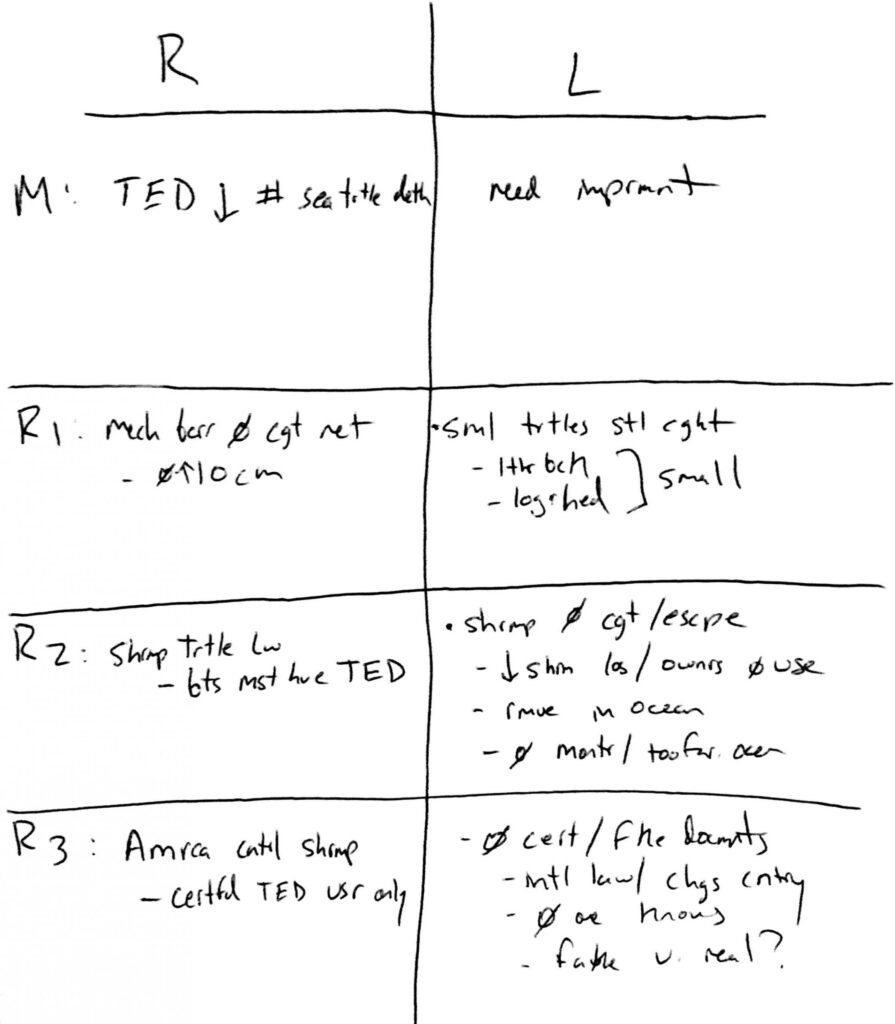 R
L
M: TED ↓ # sea trtle deth
need imprmnt
R1: Mech barr ∅ cgt net
- ∅↑10cm
• sml trtles stl cght
- lthr bck
- logrhed } small
R2: Shrmp Trtle lw
- bts mst hve TED
• shrmp ∅ cgt/escpe
- ↓ shrm los/ownrs ∅ use
- rmve in ocean
- ∅ montr/too far. ocen
R3: Amrca cntrl shrmp
- certfd TED usr only
- ∅ cert/fke docmnts
- intl law/ chgs cntry
- ∅ one knows
- fake v. real?